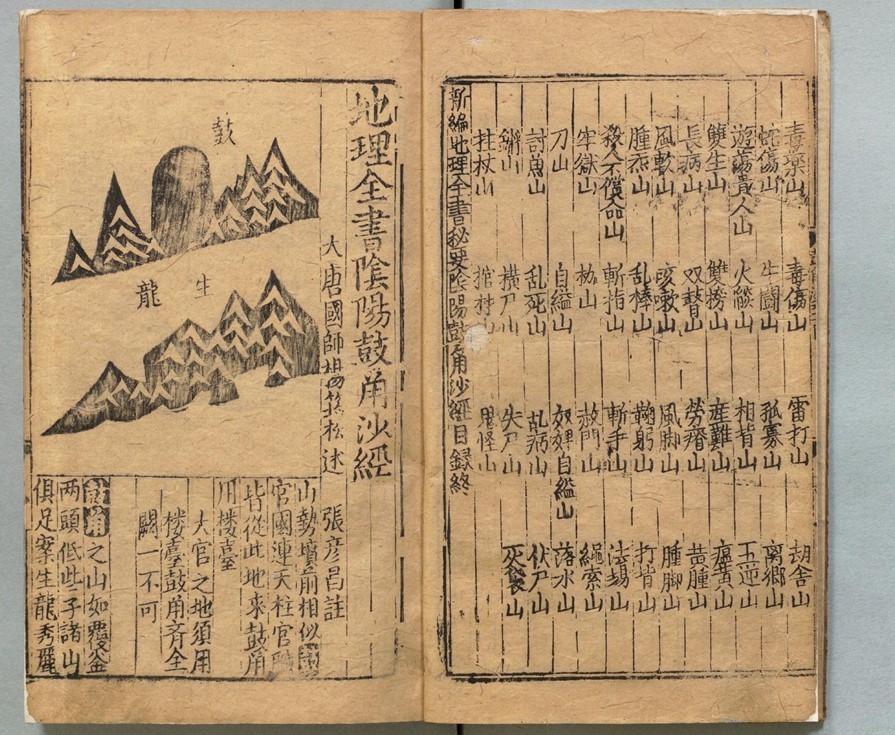 毒藥山 毒傷山 雷打山 胡舍山
蛇傷山 牛鬪山 孤寡山 离鄉山
遊蕩人山 火燄山 相背山 五逆山
雙生山 雙山 產難山 山
長病山 双瞽山 勞瘵山 黄腫山
風軟山 咳嗽山 風脚山 腫脚山
腫山 乱棒山 鞠躬山 打背山
殺人不償命山 斬指山 斬手山 法場山
牢獄山 枷山 赦門山 繩索山
刀山 自縊山 奴婢自縊山 落水山
討魚山 乱死山 乱病山 伏尸山
山 横尸山 失尸山 灰袋山
拄杖山 棺材山 鬼怪山
新編地理全書秘要陰陽鼓角沙經目録終
地理全書陰陽鼓角沙經
大唐國師楊筠松述 張彦昌註
鼓
生龍
山勢墳前相似
官國連天柱官職
皆從此地来鼓角
用楼臺
大官之地須用
楼臺鼓角齐全
闕一不可
鼓角之山如覆釜
两頭低些子諸山
俱足案生龍秀麗